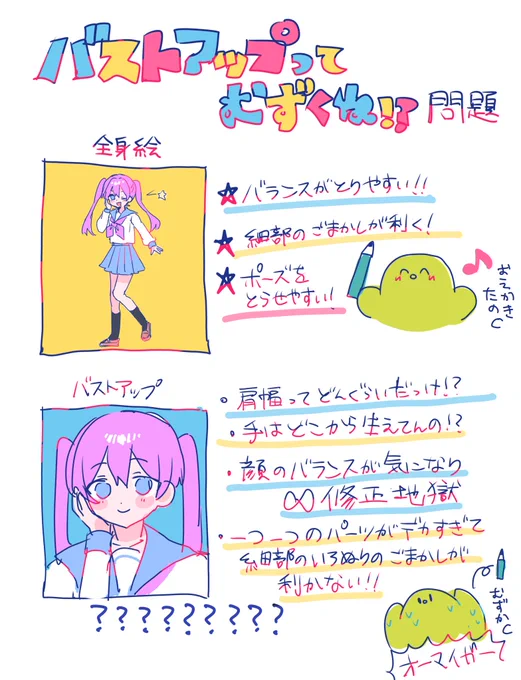 バストアップって
むずくね!? 問題
全身絵
★バランスがとりやすい!!
★細部のごまかしが利く!
★ポーズを
とらせやすい!
おえかき
たのC
バストアップ
・肩幅ってどんぐらいだっけ!?
・手はどこから生えてんの!?
・顔のバランスが気になり
∞修正地獄
・一つ一つのパーツがデカすぎて
細部のいろぬりのごまかしが
利かない!!
?????????
むずかC
オーマイガー